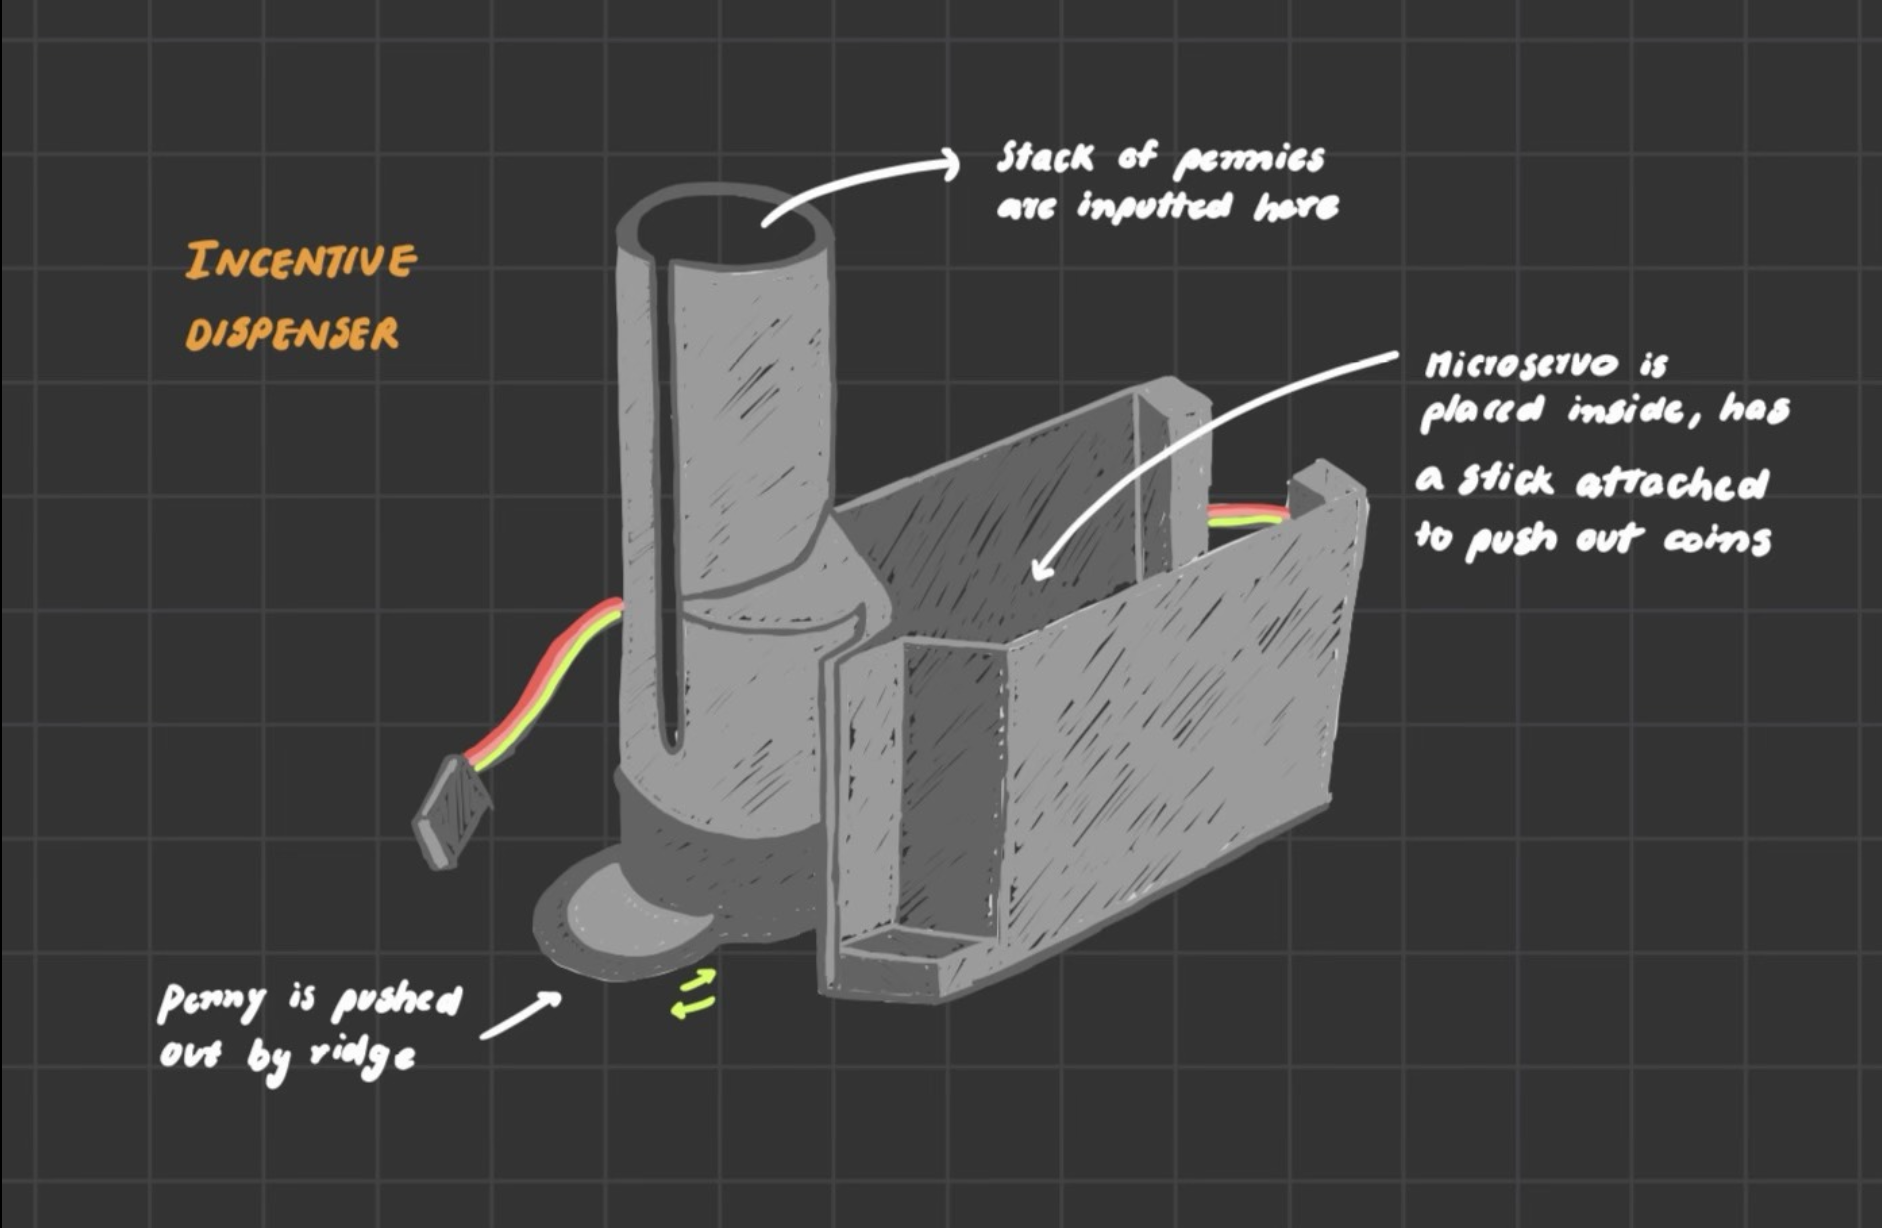 INCENTIVE
DISPENSER
Stack of pennies
are inputted here
Microservo is
placed inside, has
a stick attached
to push out coins
Penny is pushed
out by ridge